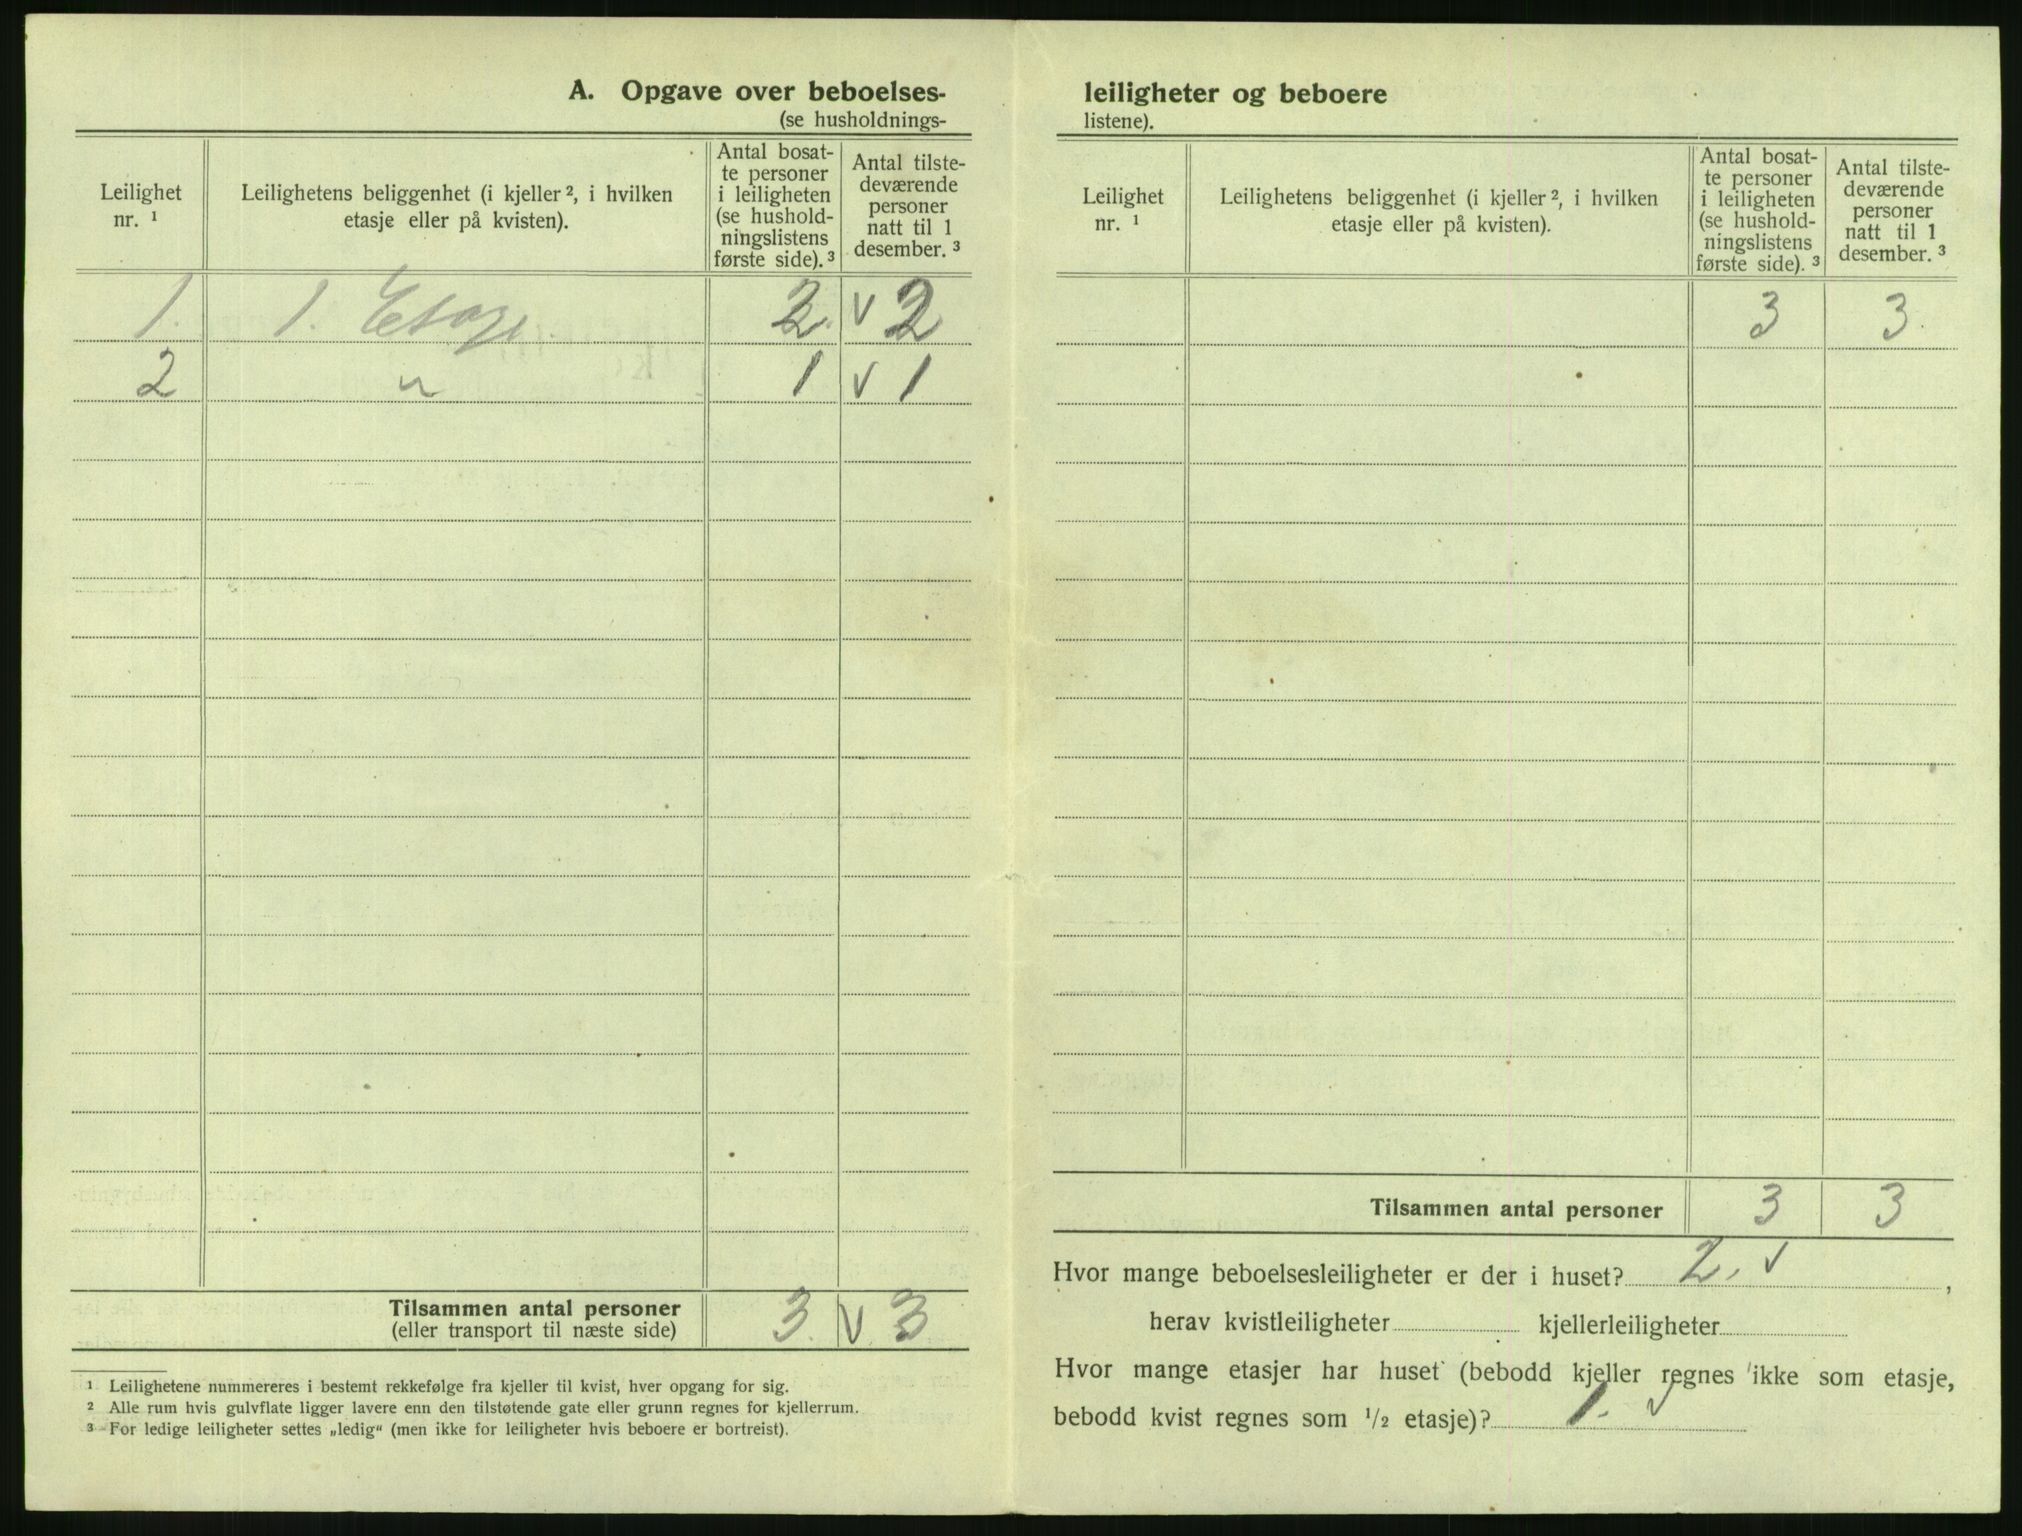 A. Opgave over beboelses-
(se husholdnings-
Leilighet nr. ¹
Leilighetens beliggenhet (i kjeller ², i hvilken etasje eller på kvisten).
Antal bosat-
te personer
i leiligheten
(se hushold-
ningslistens
første side). ³
Antal tilste-
deværende
personer
natt til 1
desember. ³
1. 1. Etage. 2. v 2
2 " 1 v 1
Tilsammen antal personer
(eller transport til næste side) 3. v. 3
¹ Leilighetene nummereres i bestemt rekkefølge fra kjeller til kvist, hver opgang for sig.
² Alle rum hvis gulvflate ligger lavere enn den tilstøtende gate eller grunn regnes for kjellerrum.
³ For ledige leiligheter settes „ledig“ (men ikke for leiligheter hvis beboere er bortreist).
leiligheter og beboere
listene).
Leilighet nr. ¹
Leilighetens beliggenhet (i kjeller ², i hvilken etasje eller på kvisten).
Antal bosat-
te personer
i leiligheten
(se hushold-
ningslistens
første side). ³
Antal tilste-
deværende
personer
natt til 1
desember. ³
3 3.
Tilsammen antal personer 3 3
Hvor mange beboelsesleiligheter er der i huset? 2. v ,
herav kvistleiligheter kjellerleiligheter
Hvor mange etasjer har huset (bebodd kjeller regnes ikke som etasje,
bebodd kvist regnes som ¹/₂ etasje)? 1. v